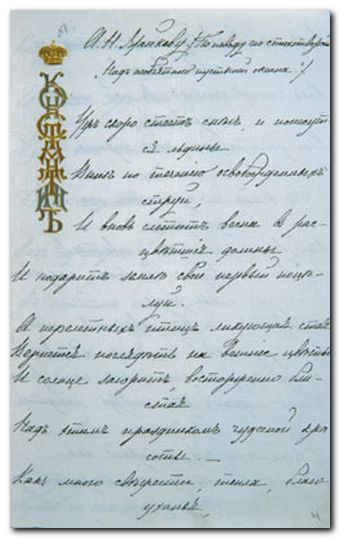 КОНСТАНТИНЪ
А. Н. Майкову. /По поводу его стихотворенія
„Надъ необъятною пустыней океана."/
Ужъ скоро стаетъ снѣгъ, и понесут-
ся льдины
Внизъ по теченію освобожденныхъ
струй,
И вновь слетитъ весна въ рас-
цвѣтшія долины
И подаритъ землѣ свой первый поцѣ-
луй.
А перелетныхъ птицъ ликующая стая
Вернется поглядѣть на вешніе цвѣты
И солнце загоритъ, восторженно бли-
стая
Надъ этимъ праздникомъ чудесной кра-
соты. —
Какъ много свѣжести, тепла, благо-
уханья,
4